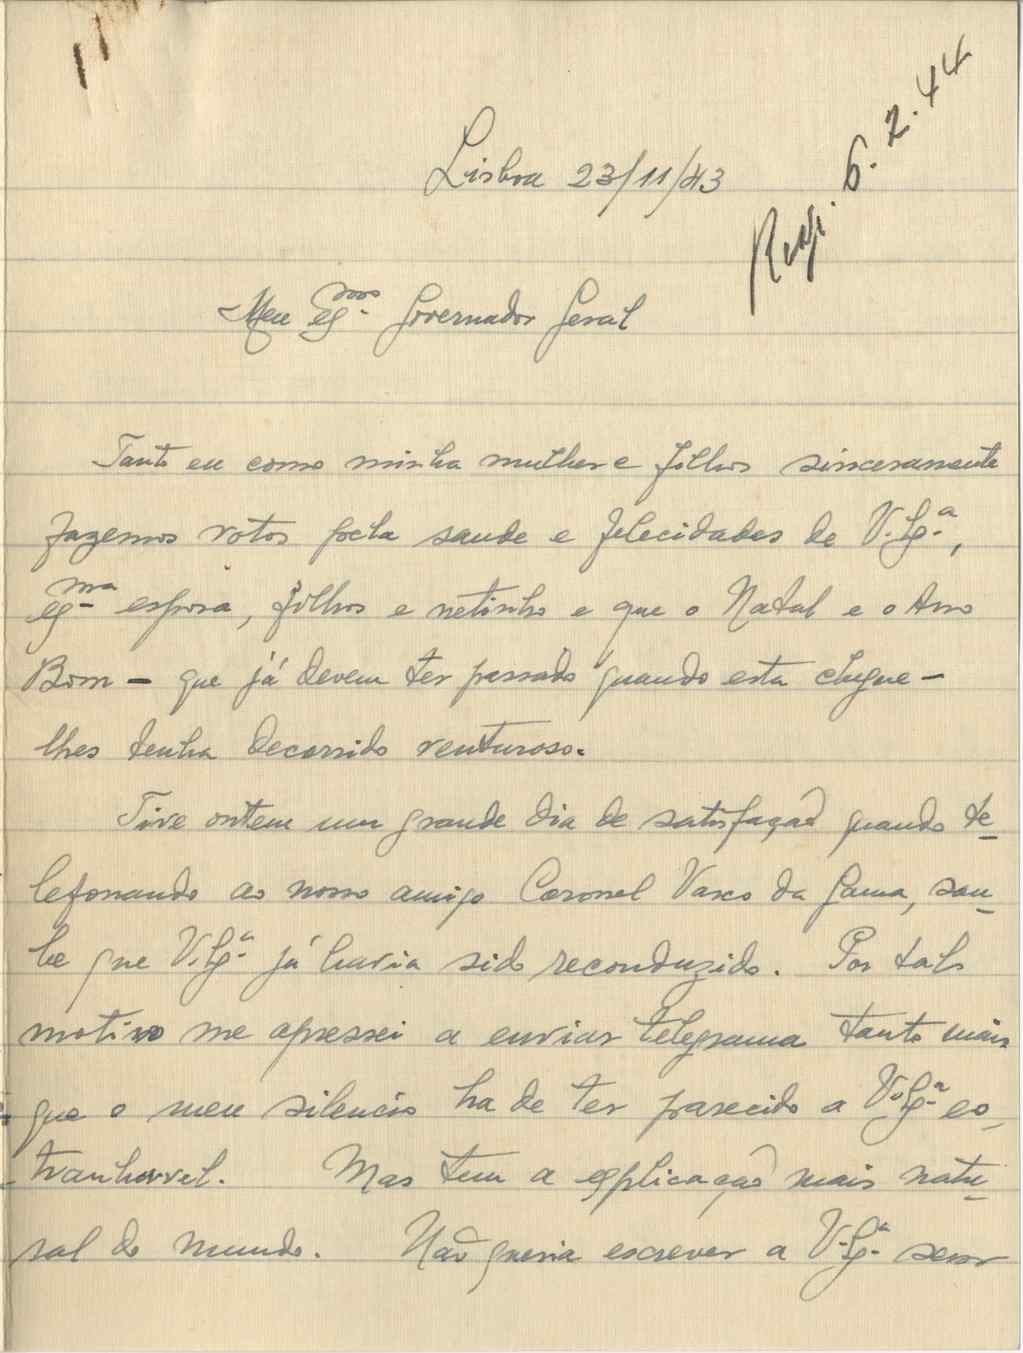 Resp. 6.2.44
Lisboa 23/11/43
Meu Exmo. Governador Geral
Tanto eu como minha mulher e filhos sinceramente
fazemos votos pela saude e felecidades de V. Exª.,
Exma. esposa, filhos e netinho e que o Natal e o Ano
Bom - que já devem ter passado quando esta chegue -
lhes tenha decorrido venturoso.
Tive ontem um grande dia de satisfação quando te-
lefonando ao nosso amigo Coronel Vasco da Gama, sou-
be que V. Exª. já havia sido reconduzido. Por tal
motivo me apressei a enviar telegrama tanto mais
que o meu silencio ha de ter parecido a V. Exª. es-
tranhavel. Mas tem a explicação mais natu-
ral do mundo. Não queria escrever a V. Exª. sem